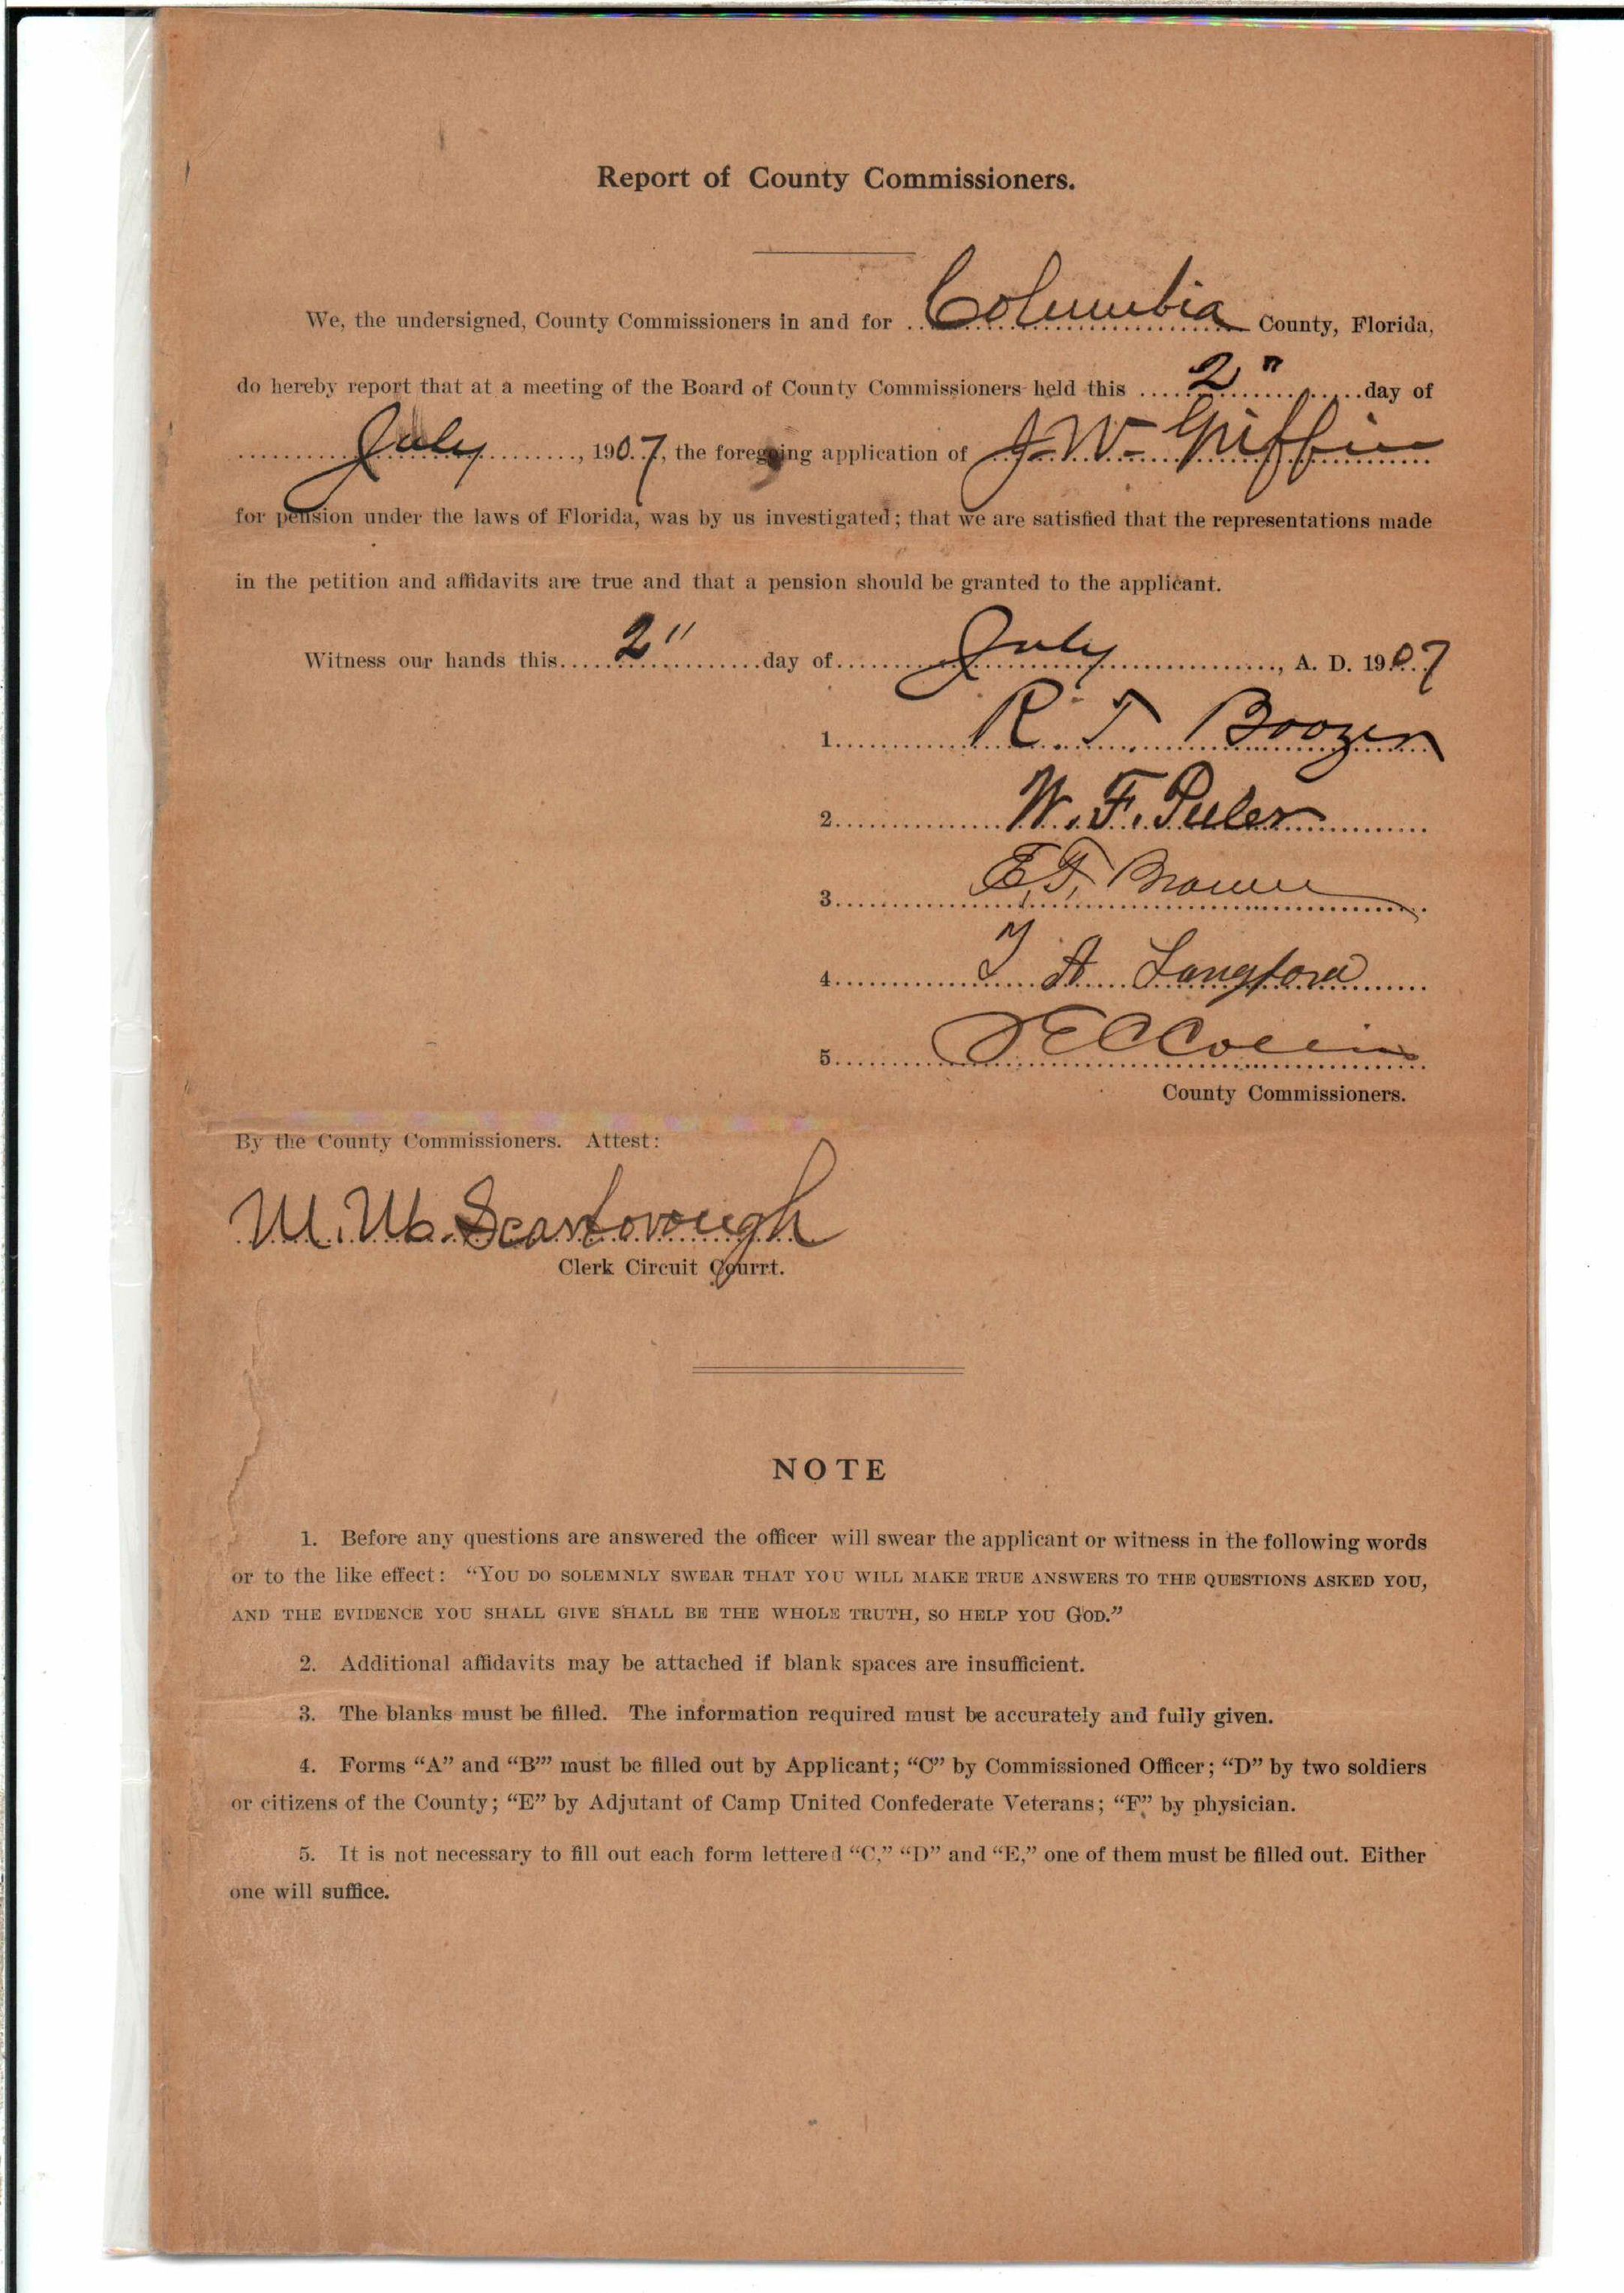 Report of County Commissioners.
We, the undersigned, County Commissioners in and for Columbia County, Florida,
do hereby report that at a meeting of the Board of County Commissioners held this 2" day of
July, 1907, the foregoing application of J. W. Griffin
for pension under the laws of Florida, was by us investigated; that we are satisfied that the representations made
in the petition and affidavits are true and that a pension should be granted to the applicant.
Witness our hands this 2" day of July, A. D. 1907
1. R. T. Boozer
2. W. F.
3. E. T. Brown
4. T A Langford
5.
County Commissioners.
By the County Commissioners. Attest:
M. M. Scarborough
Clerk Circuit Courrt.
NOTE
1. Before any questions are answered the officer will swear the applicant or witness in the following words
or to the like effect: “YOU DO SOLEMNLY SWEAR THAT YOU WILL MAKE TRUE ANSWERS TO THE QUESTIONS ASKED YOU,
AND THE EVIDENCE YOU SHALL GIVE SHALL BE THE WHOLE TRUTH, SO HELP YOU GOD.”
2. Additional affidavits may be attached if blank spaces are insufficient.
3. The blanks must be filled. The information required must be accurately and fully given.
4. Forms “A” and “B”’ must be filled out by Applicant; “C” by Commissioned Officer; “D” by two soldiers
or citizens of the County; “E” by Adjutant of Camp United Confederate Veterans; “F” by physician.
5. It is not necessary to fill out each form lettered “C,” “D” and “E,” one of them must be filled out. Either
one will suffice.